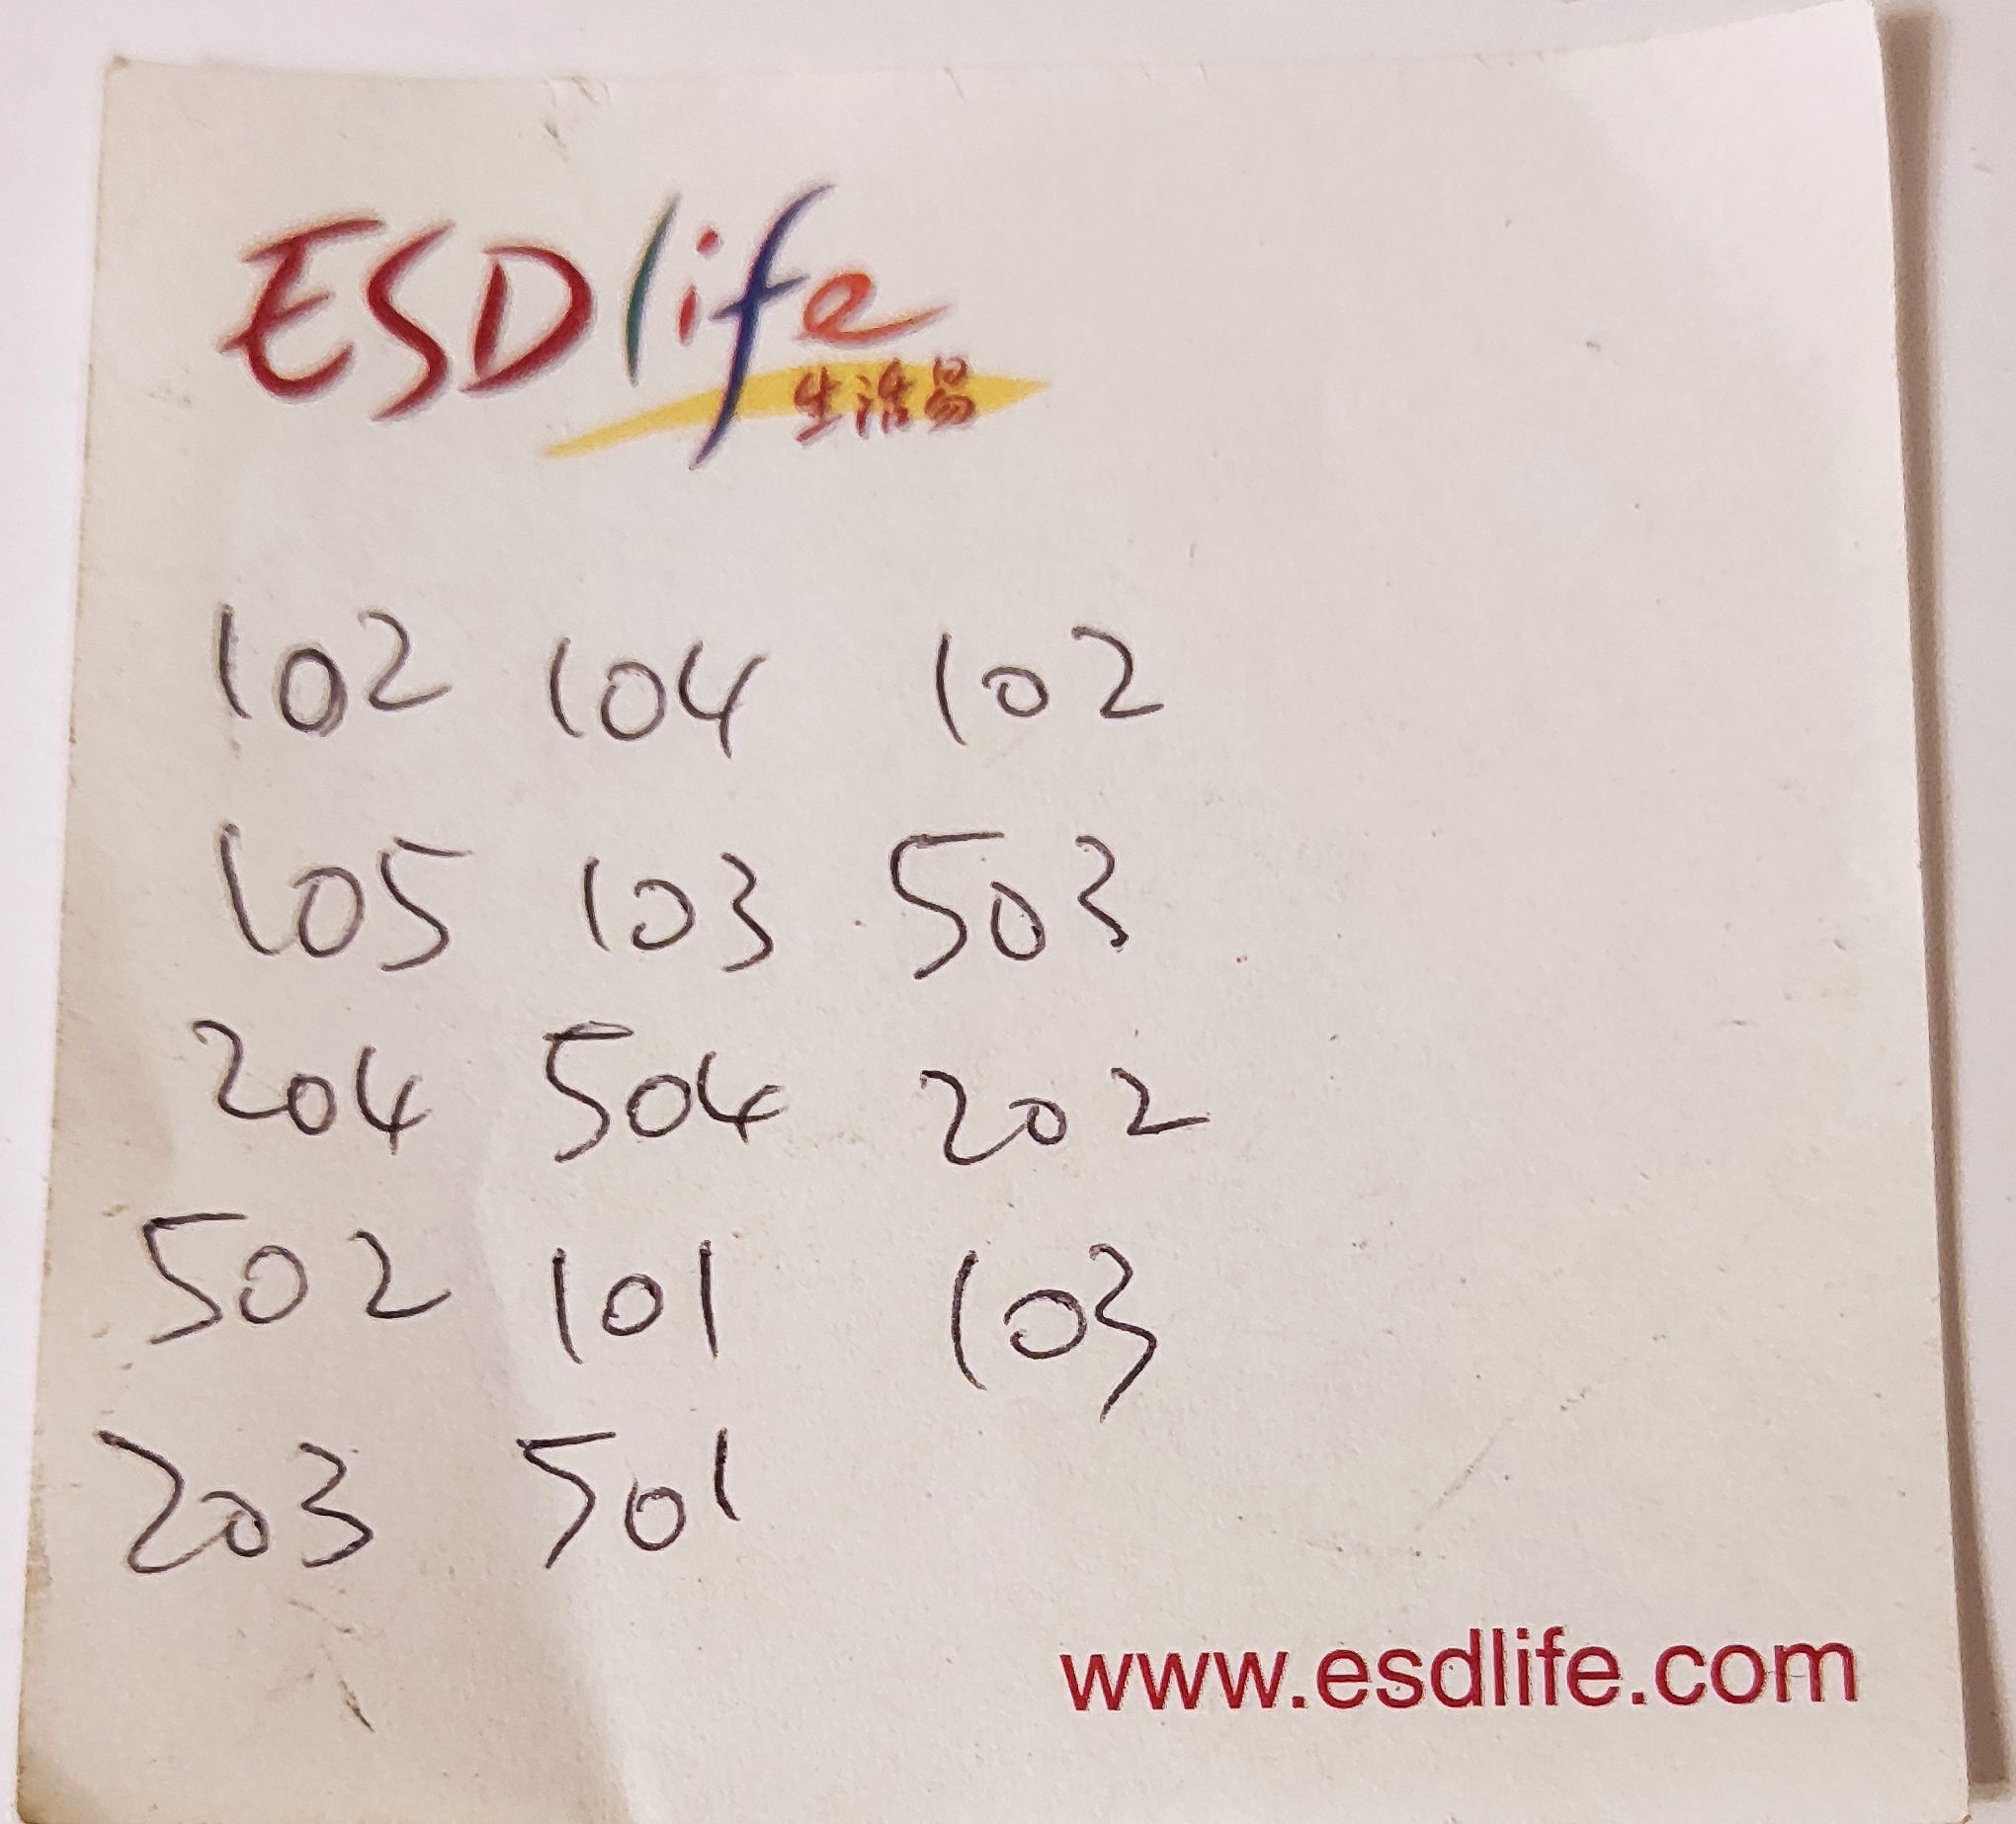 ESDlife
生活易
102 104 102
105 103 503
204 504 202
502 101 103
203 501
www.esdlife.com